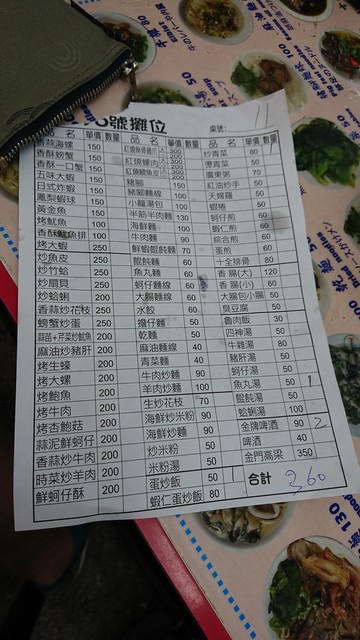 號攤位 桌號: 11
品名 單價 數量 品名 單價 數量 品名 單價 數量
蒜海螺 150 炒青菜 80 1
香酥螃蟹 150 燙青菜 50
香酥一口蟹 150 廣東粥 70
五味大蝦 150 豬腳 150 紅油炒手 50
日式炸蝦 150 豬腳麵線 100 天婦羅 50
鳳梨蝦球 150 半筋半肉麵 130 蝦捲 50
黃金魚 150 海鮮麵 100 蚵仔煎 60
烤魷魚 100 牛肉麵 90 蝦仁煎 60
香酥魷魚排 100 鮮蝦餛飩麵 70 綜合煎 60
烤大蝦 250 餛飩麵 50 蛋煎 60
炒魚皮 250 魚丸麵 50 十全排骨 80
炒竹蛤 250 蚵仔麵線 60 香腸(大) 120
炒扇貝 250 大腸麵線 60 香腸(小) 60
炒蛤蜊 200 水餃 60 大腸包小腸 50
香蒜炒花枝 250 擔仔麵 50 臭豆腐 50
螃蟹炒蛋 250 乾麵 50 魯肉飯 30
蒜苗+芹菜炒魷魚 200 麻油麵線 40 四神湯 50
麻油炒豬肝 200 青菜麵 40 牛雜湯 80
烤生蠔 200 牛肉炒麵 90 豬肝湯 50
烤大螺 200 羊肉炒麵 100 蚵仔湯 50
烤鮑魚 200 生炒花枝 70 魚丸湯 50 1
烤牛肉 200 海鮮炒米粉 90 餛飩湯 50
烤杏鮑菇 200 海鮮炒麵 90 蛤蜊湯 100
蒜泥鮮蚵仔 200 炒米粉 50 金牌啤酒 90 2
香蒜炒牛肉 200 米粉湯 50 啤酒 40
時菜炒羊肉 200 蛋炒飯 50 1 金門高粱 350
鮮蚵仔酥 200 蝦仁蛋炒飯 80 合計 360